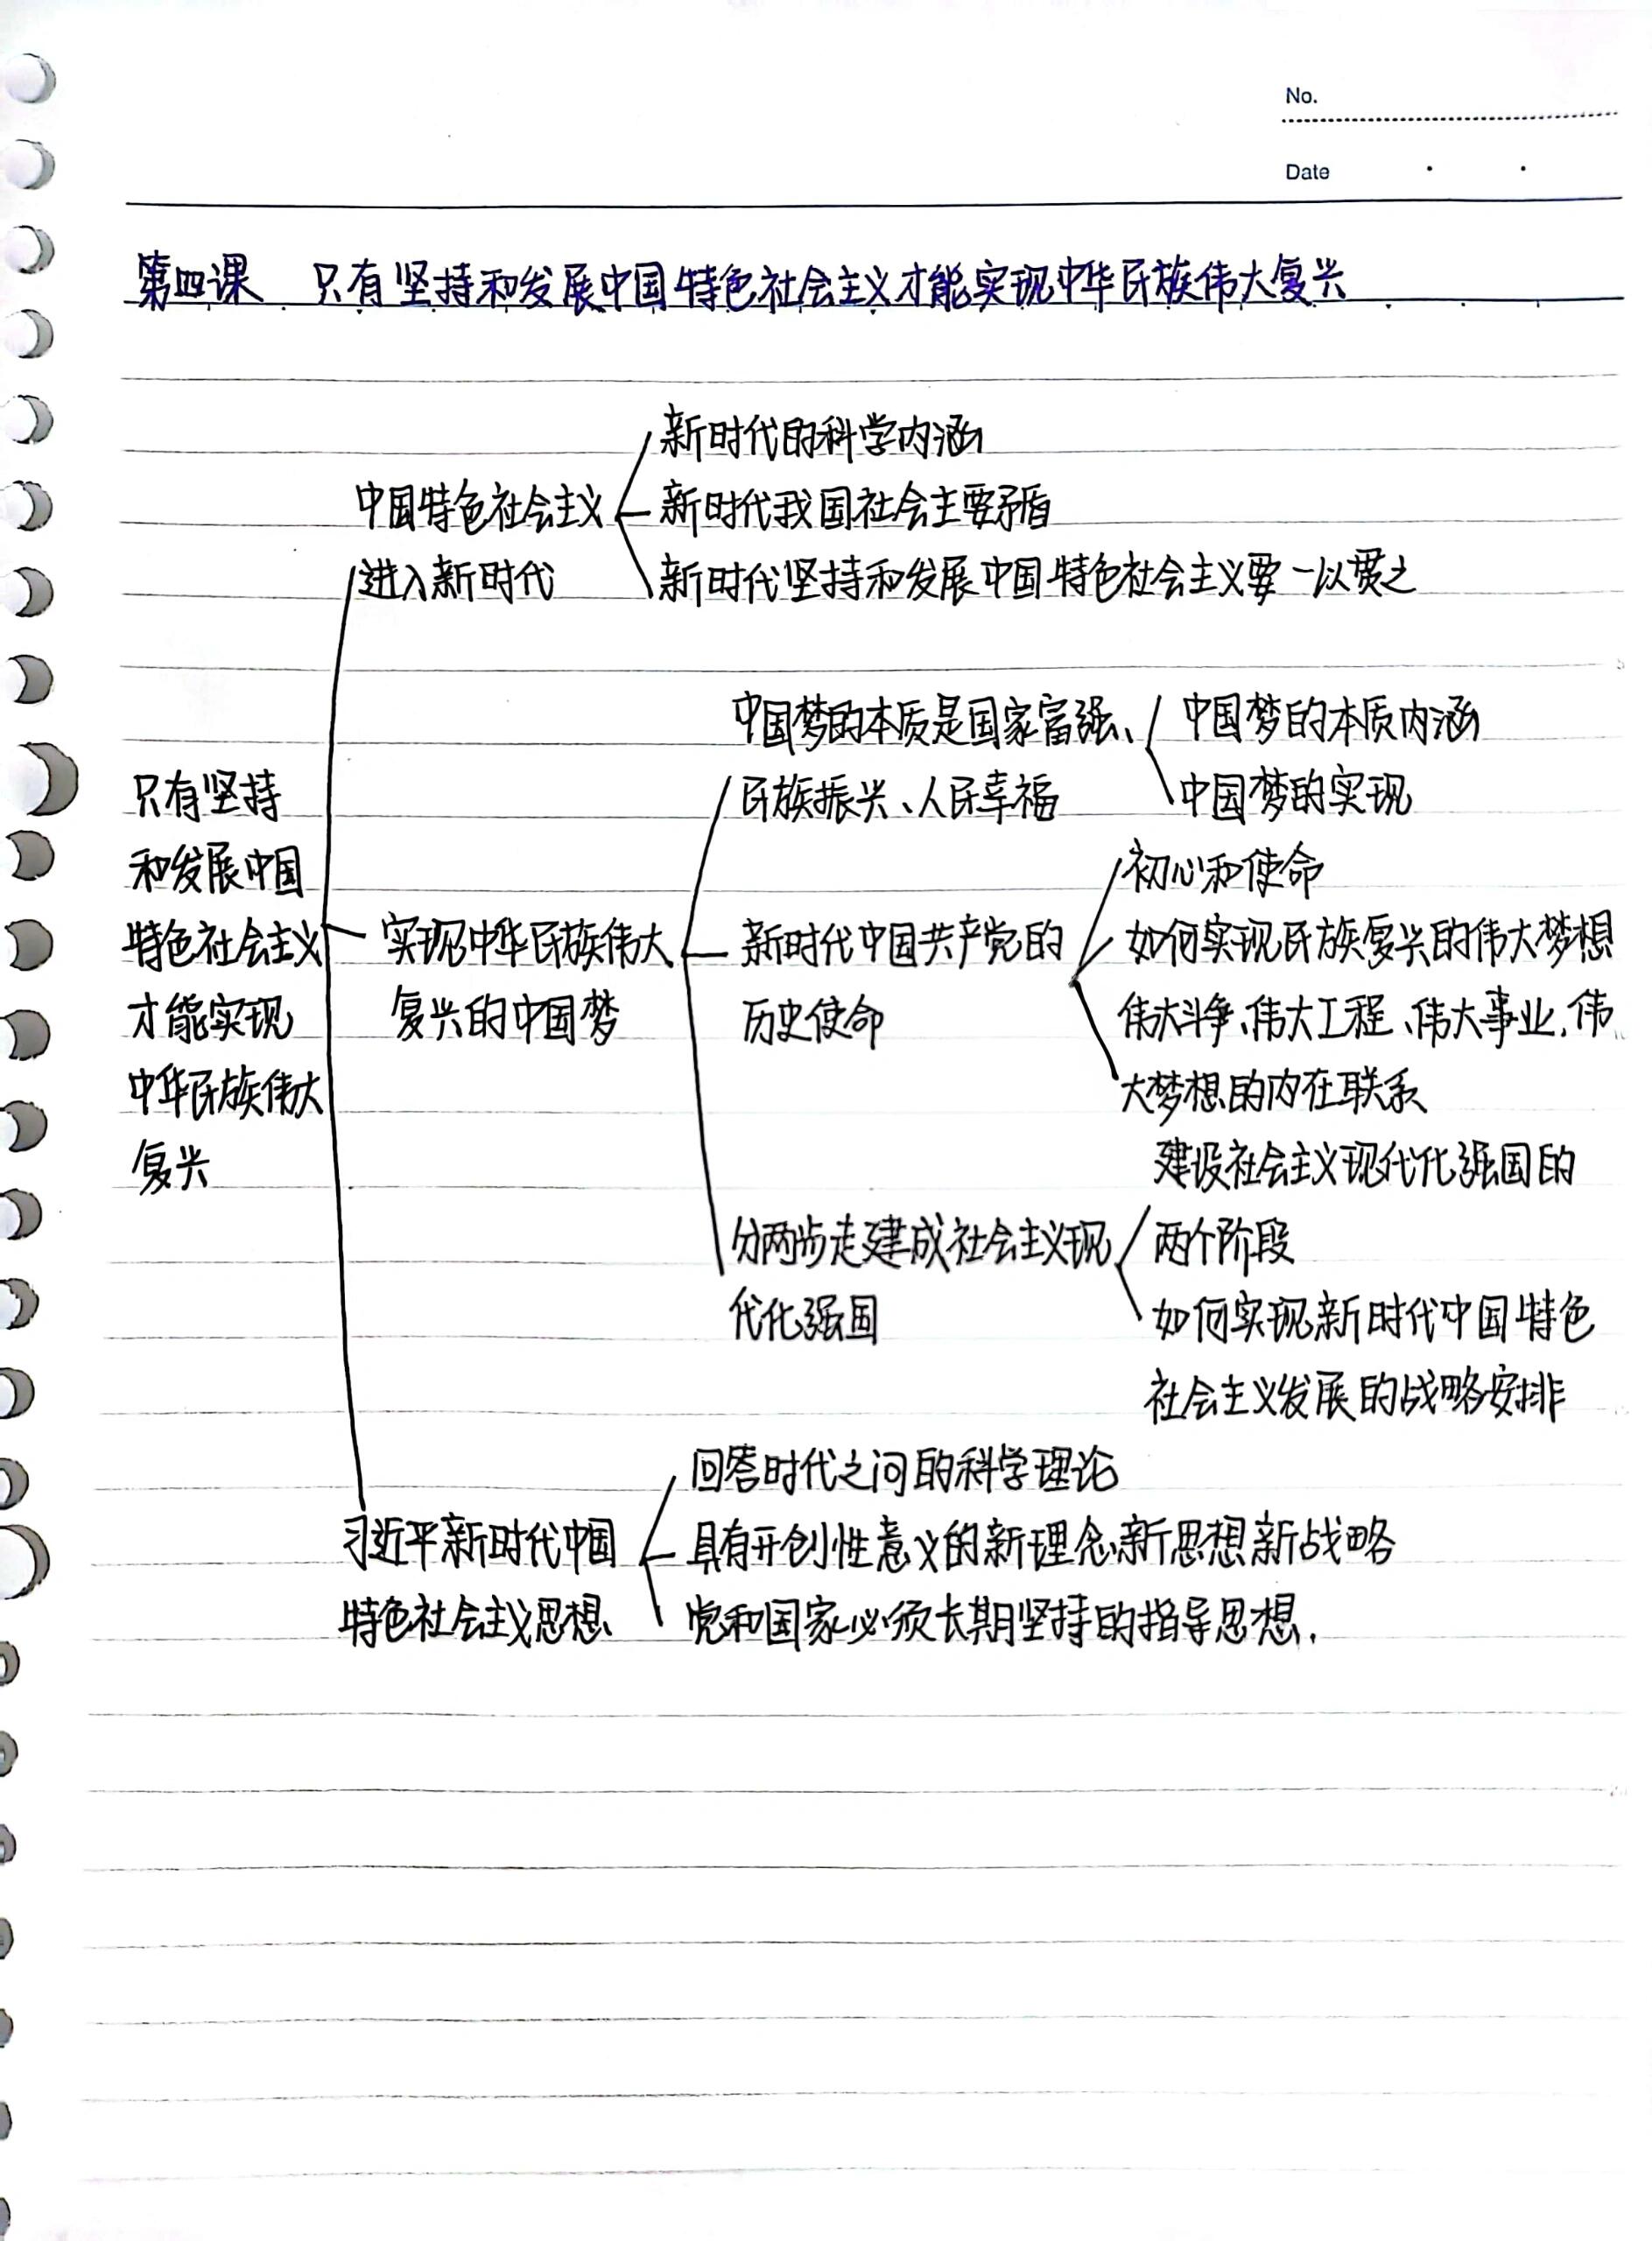 No.
Date
第四课 只有坚持和发展中国特色社会主义才能实现中华民族伟大复兴
新时代的科学内涵
中国特色社会主义
新时代我国社会主要矛盾
进入新时代
新时代坚持和发展中国特色社会主义要一以贯之
中国梦的本质是国家富强、
中国梦的本质内涵
只有坚持
民族振兴、人民幸福
中国梦的实现
和发展中国
初心和使命
特色社会主义
实现中华民族伟大
新时代中国共产党的
如何实现民族复兴的伟大梦想
才能实现
复兴的中国梦
历史使命
伟大斗争、伟大工程、伟大事业、伟
中华民族伟大
大梦想的内在联系
复兴
建设社会主义现代化强国的
分两步走建成社会主义现
两个阶段
代化强国
如何实现新时代中国特色
社会主义发展的战略安排
回答时代之问的科学理论
习近平新时代中国
具有开创性意义的新理念新思想新战略
特色社会主义思想
党和国家必须长期坚持的指导思想.